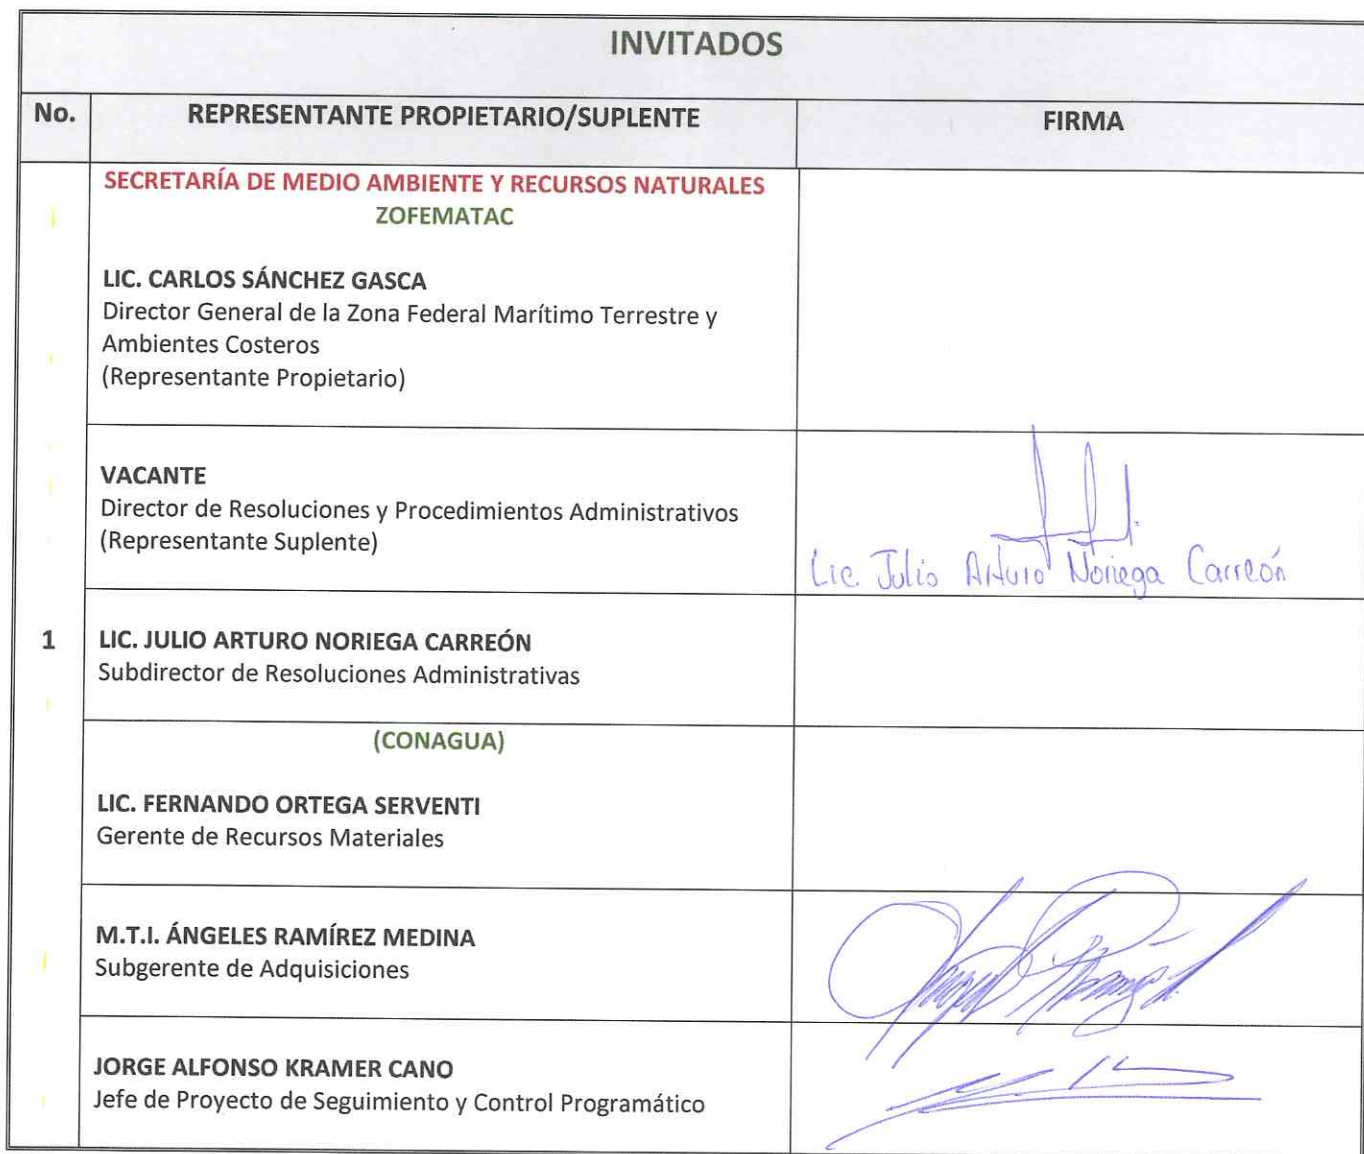 INVITADOS
No. REPRESENTANTE PROPIETARIO/SUPLENTE FIRMA
SECRETARÍA DE MEDIO AMBIENTE Y RECURSOS NATURALES
ZOFEMATAC
LIC. CARLOS SÁNCHEZ GASCA
Director General de la Zona Federal Marítimo Terrestre y
Ambientes Costeros
(Representante Propietario)
VACANTE
Director de Resoluciones y Procedimientos Administrativos
(Representante Suplente)
Lic. Julio Arturo Noriega Carreón
1 LIC. JULIO ARTURO NORIEGA CARREÓN
Subdirector de Resoluciones Administrativas
(CONAGUA)
LIC. FERNANDO ORTEGA SERVENTI
Gerente de Recursos Materiales
M.T.I. ÁNGELES RAMÍREZ MEDINA
Subgerente de Adquisiciones
JORGE ALFONSO KRAMER CANO
Jefe de Proyecto de Seguimiento y Control Programático